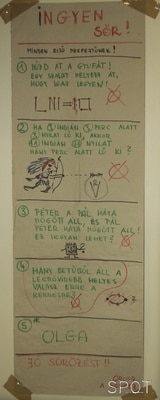 INGYEN
SÖR!
MINDEN ELSŐ MEGFEJTŐNEK!
1 HÚZD ÁT A GYUFÁT!
EGY SZÁLAT HELYEZZ ÁT,
HOGY IGAZ LEGYEN!
2 HA 5 INDIÁN 5 PERC ALATT
5 NYILAT LŐ KI, AKKOR
INDIÁN NYILAT
HÁNY PERC ALATT LŐ KI?
3 PÉTER A PÁL HÁTA
MÖGÖTT ÁLL, ÉS PÁL
PÉTER HÁTA MÖGÖTT ÁLL!
EZ HOGYAN LEHET?
4 HÁNY BETŰBŐL ÁLL A
LEGRÖVIDEBB HELYES
VÁLASZ ERRE A
KÉRDÉSRE?
5
OLGA
JÓ SÖRÖZÉST!!
SPOT